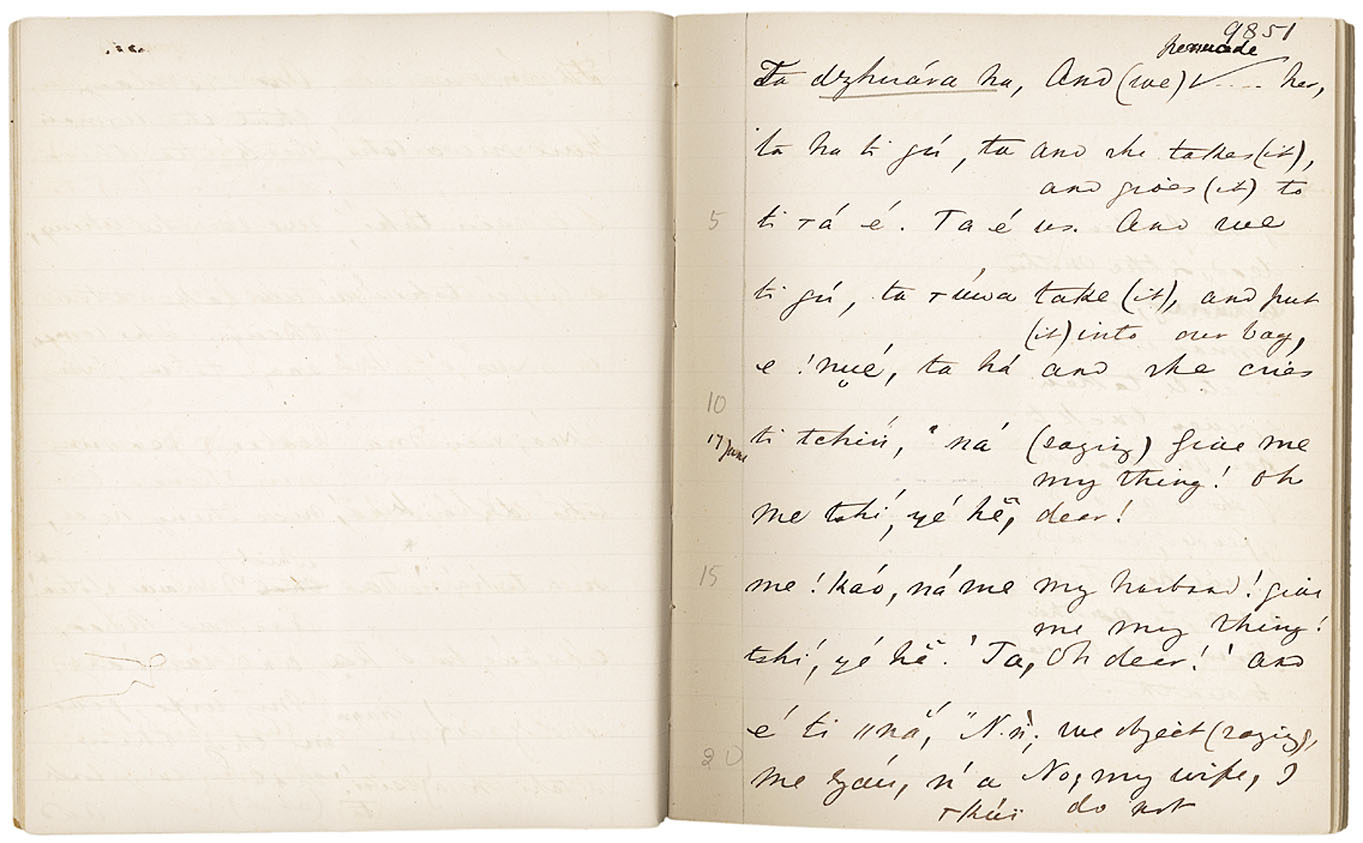 9851
persuade
Ta dzhuára ha, And (we) .... her,
ta ha ti gú, ta and she takes (it),
and gives (it) to
5 ti τá é. Ta é us. And we
ti gú, ta τúwa take (it), and put
(it) into our bag,
e !nu̯é, ta há and she cries
10
17 June ti tchiń, "ná (saying) Give me
my thing! Oh
me tshí, yé hē̆, dear!
15 me !káo, ná me my husband! give
me my thing!
tshí, yé hē̆.' Ta, Oh dear!' and
é ti ‖nắ, "N.ǹ; we object (saying),
20 me záú, ń a No, my wife, I
τkúï do not